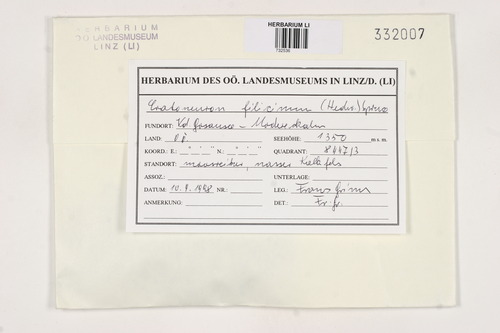 HERBARIUM
OÖ LANDESMUSEUM
LINZ (LI)
HERBARIUM LI
332007
HERBARIUM DES OÖ. LANDESMUSEUMS IN LINZ/D. (LI)
Cratoneuron filicinum (Hedw.) Spruce
FUNDORT: Vd. Gosausee -
LAND: OÖ SEEHÖHE: 1350 m s.m.
KOORD.: E.: ° ' " N.: ° ' " QUADRANT: 8447/3
STANDORT: nasser Kalkfels
ASSOZ.: UNTERLAGE:
DATUM: NR.: LEG.: Franz Grims
ANMERKUNG: DET.: Fr. Gr.